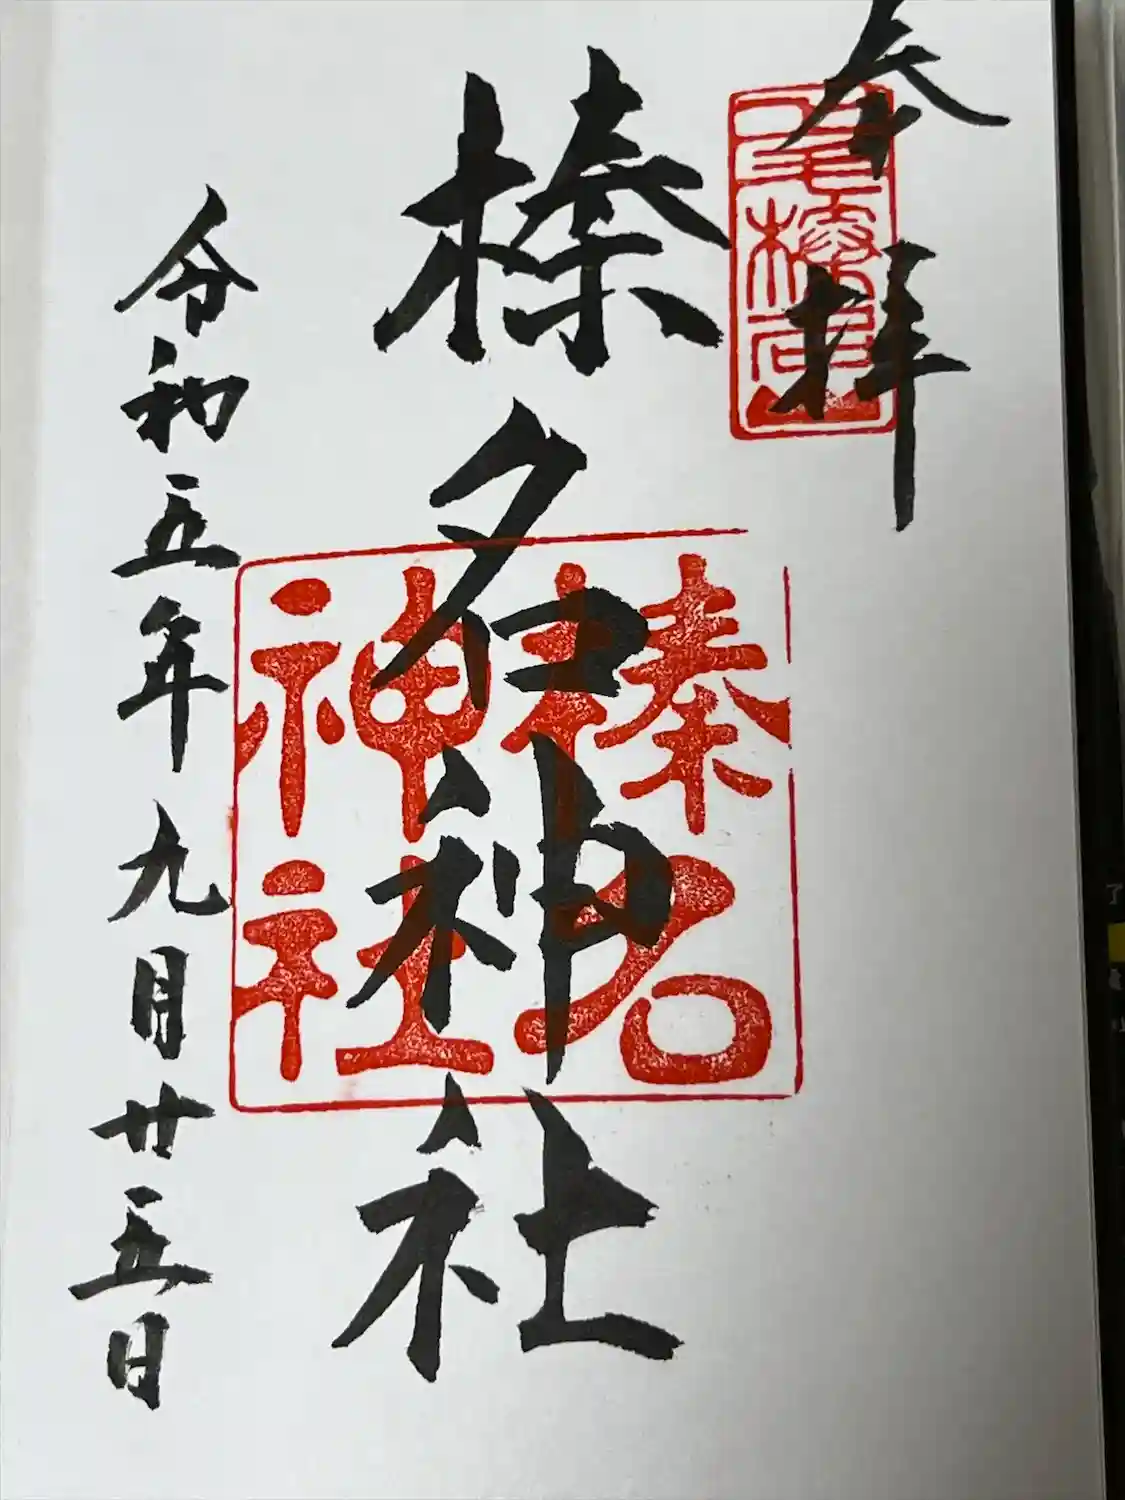 奉拝
上毛榛名山
榛名神社
榛名
神社
令和五年九月廿五日